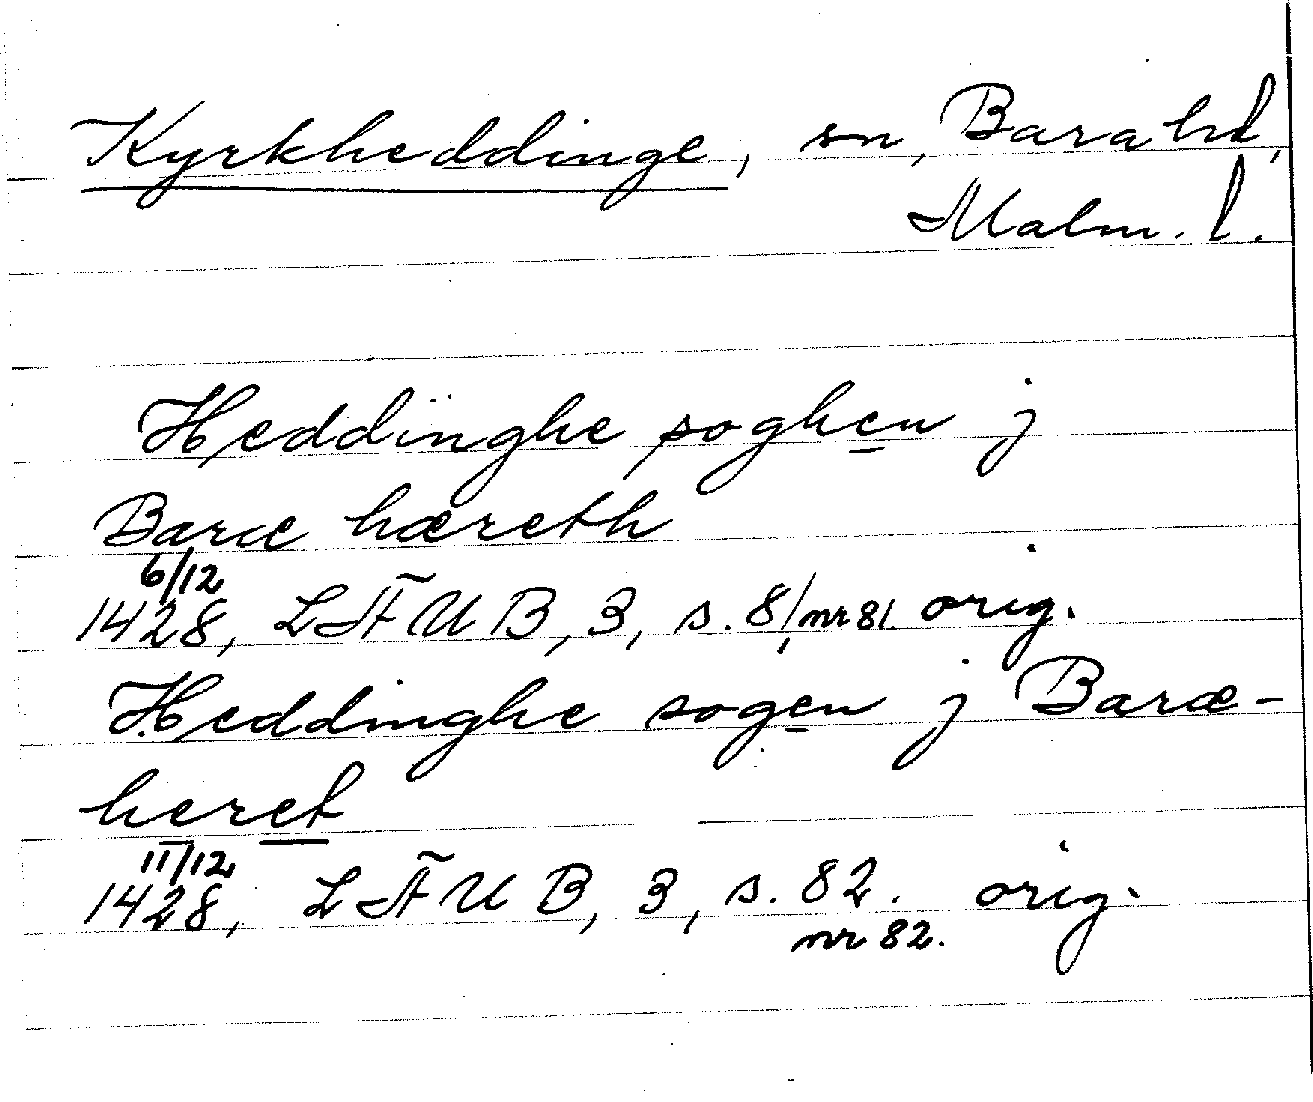 Kyrkheddinge, sn, Bara hd,
Malm. l.
Heddinghe soghen j
Baræ hæreth
6/12
1428, LÄUB, 3, s. 81, nr 81. orig.
Heddinghe sogen j Baræ-
heret
11/12
1428, LÄUB, 3, s. 82. orig.
nr 82.